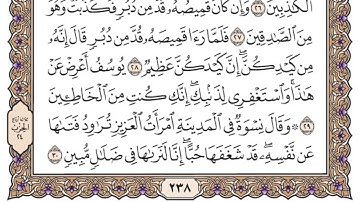 ٱلۡكَٰذِبِينَ ٢٦ وَإِن كَانَ قَمِيصُهُۥ قُدَّ مِن دُبُرٖ فَكَذَبَتۡ وَهُوَ
مِنَ ٱلصَّٰدِقِينَ ٢٧ فَلَمَّا رَءَا قَمِيصَهُۥ قُدَّ مِن دُبُرٖ قَالَ إِنَّهُۥ
مِن كَيۡدِكُنَّۖ إِنَّ كَيۡدَكُنَّ عَظِيمٞ ٢٨ يُوسُفُ أَعۡرِضۡ عَنۡ
هَٰذَاۚ وَٱسۡتَغۡفِرِي لِذَنۢبِكِۖ إِنَّكِ كُنتِ مِنَ ٱلۡخَاطِـِٔينَ
٢٩ ۞ وَقَالَ نِسۡوَةٞ فِي ٱلۡمَدِينَةِ ٱمۡرَأَتُ ٱلۡعَزِيزِ تُرَٰوِدُ فَتَىٰهَا
عَن نَّفۡسِهِۦۖ قَدۡ شَغَفَهَا حُبًّاۖ إِنَّا لَنَرَىٰهَا فِي ضَلَٰلٖ مُّبِينٖ ٣٠
٢٣٨